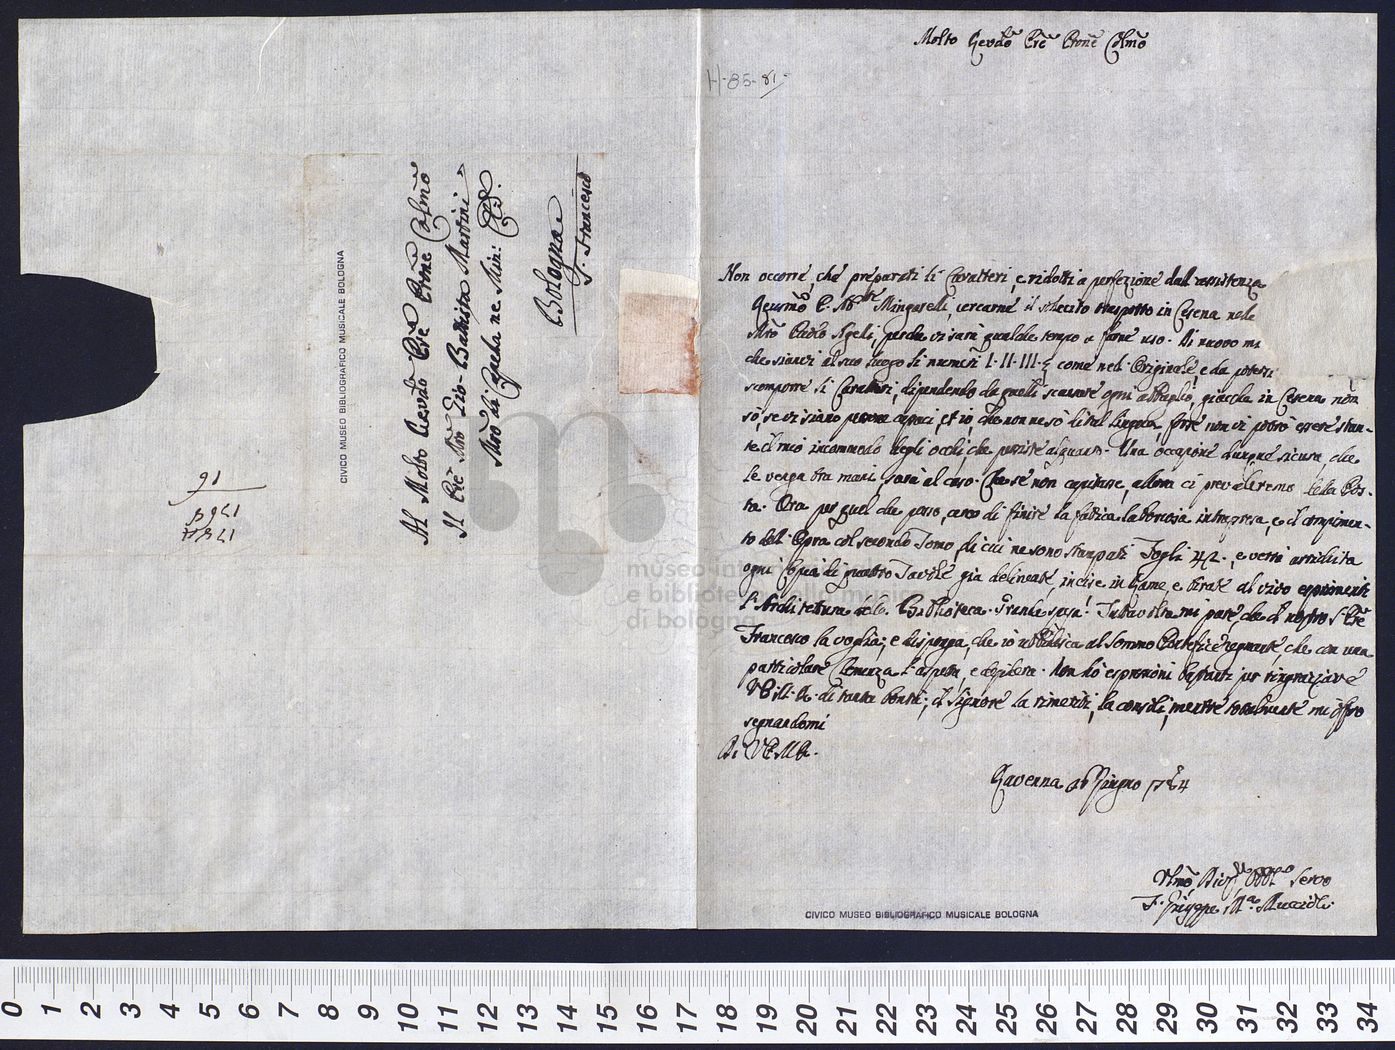 Molto Revdo Pre Prone Colmo
H-85-81-
Non occorre, che preparati li Caratteri, e ridotti a perfezione dall'assistenza
P. Mingarelli, cercarne il in Cesena nelle
Mro Pietro Ageli, perche vi sarà qualche tempo a farne uso. Di nuovo
che al suo luogo li numeri I. II. III. come nell'Originale, e da
scomporre li Caratteri, dipendendo da quelli ogni giacchè in Cesena non
sò, se vi siano persone capaci, et io, che non ne sò di tal lingua, forse non vi potrò essere stan-
te il mio incommodo degli occhi, che alquanto. Una occasione dunque sicura, che
le venga tra mani, sarà al caso. Che se non capitasse, allora ci prevaleremo della Pos-
ta. Ora per quel che posso, cerco di finire la fatica laboriosa intrapresa, e il compimen-
to dell'Opra col secondo Tomo, di cui ne sono stampati Fogli 42., e verrà arrichita
ogni Copia di quattro Tavole già delineate, incise in Rame, e tirate al vivo esprimenti
l'Architettura della Biblioteca. Grande spesa! Tuttavolta mi pare, che il nostro S. Pre
Francesco la voglia; e disponga, che io ubbidisca al Sommo Pontefice regnante, che con una
particolare l'aspetta, e desidera. Non hò espressioni bastanti per ringraziare
di tanta bontà; il Signore la rimeriti, la consoli, mentre mi offro
segnandomi
Di V.P.M.R.
Ravenna 26 Giugno 1784
Umo Obblmo Servo
F. Giuseppe Ma Muccioli
CIVICO MUSEO BIBLIOGRAFICO MUSICALE BOLOGNA
Al Molto Revdo Pre Prone Colmo
Il Pre Mro Gio. Battista Martini
Mro di Capella ne Min: 
Bologna
S. Francesco
CIVICO MUSEO BIBLIOGRAFICO MUSICALE BOLOGNA
1784
1768
16
museo internazionale
e biblioteca della musica
di bologna
0 1 2 3 4 5 6 7 8 9 10 11 12 13 14 15 16 17 18 19 20 21 22 23 24 25 26 27 28 29 30 31 32 33 34